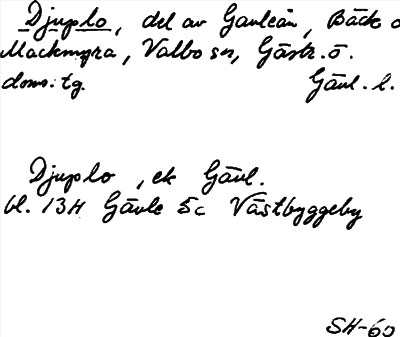 Djuplo, del av Gavleån, Bäck o
Mackmyra, Valbo sn, Gästr. ö.
doms:tg. Gävl. l.
Djuplo , ek Gävl.
bl. 13H Gävle 5c Västbyggeby
SH-60